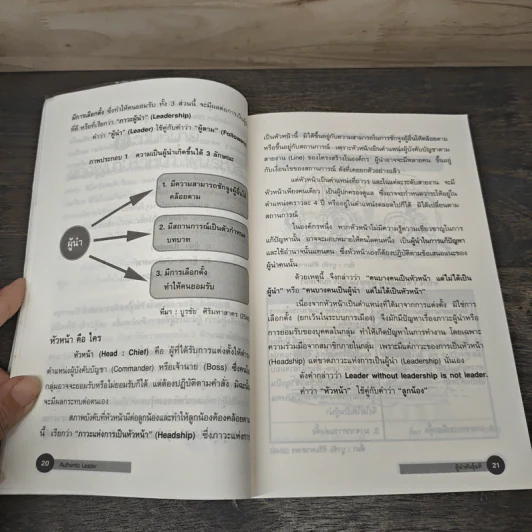 มีการเลือกตั้ง ซึ่งทำให้คนยอมรับ ทั้ง 3 ส่วนนี้ จะมีผลต่อการเป็น
ที่ดี หรือที่เรียกว่า "ภาวะผู้นำ" (Leadership)
คำว่า "ผู้นำ" (Leader) ใช้คู่กับคำว่า "ผู้ตาม" (Follower)
ภาพประกอบ 1 ความเป็นผู้นำเกิดขึ้นได้ 3 ลักษณะ
ผู้นำ
1. มีความสามารถชักจูงผู้อื่นให้
คล้อยตาม
2. มีสถานการณ์เป็นตัวกำหนด
บทบาท
3. มีการเลือกตั้ง
ทำให้คนยอมรับ
ที่มา : บูรชัย ศิริมหาสาคร
หัวหน้า คือ ใคร
หัวหน้า (Head : Chief) คือ ผู้ที่ได้รับการแต่งตั้งให้ดำรง
ตำแหน่งผู้บังคับบัญชา (Commander) หรือเจ้านาย (Boss) ซึ่งคน
กลุ่มอาจจะยอมรับหรือไม่ยอมรับก็ได้ แต่ต้องปฏิบัติตามคำสั่ง มิฉะนั้น
จะมีผลกระทบต่อตนเอง
สภาพบังคับที่หัวหน้ามีต่อลูกน้องและทำให้ลูกน้องต้องคล้อยตาม
นี้ เรียกว่า "ภาวะแห่งการเป็นหัวหน้า" (Headship) ซึ่งภาวะแห่งการ
20 Authentic Leader
เป็นหัวหน้านี้ มิได้ขึ้นอยู่กับความสามารถในการชักจูงผู้อื่นให้คล้อยตาม
หรือขึ้นอยู่กับสถานการณ์ เพราะหัวหน้าเป็นตำแหน่งผู้บังคับบัญชาตาม
สายงาน (Line) ของโครงสร้างในองค์การ ผู้นำอาจจะมีหลายคน ขึ้นอยู่
กับเงื่อนไขของสถานการณ์ ดังที่เคยยกตัวอย่างแล้ว
แต่หัวหน้าเป็นตำแหน่งที่ถาวร และในแต่ละระดับสายงาน จะมี
หัวหน้าเพียงคนเดียว เป็นผู้ปกครองดูแล ซึ่งอาจจะกำหนดวาระให้อยู่ใน
ตำแหน่งคราวละ 4 ปี หรืออยู่ในตำแหน่งตลอดไปก็ได้ มิได้เปลี่ยนตาม
สถานการณ์
ในองค์กรหนึ่งๆ หากหัวหน้าไม่มีความรู้ความเชี่ยวชาญในการ
แก้ปัญหานั้น อาจจะมอบหมายให้คนใดคนหนึ่ง เป็นผู้นำในการแก้ปัญหา
และใช้อำนาจนั้นแทนตน ซึ่งหัวหน้าเองก็ต้องปฏิบัติตามข้อเสนอแนะของ
ผู้นำคนนั้น
ด้วยเหตุนี้ จึงกล่าวว่า "คนบางคนเป็นหัวหน้า แต่ไม่ได้เป็น
ผู้นำ" หรือ "คนบางคนเป็นผู้นำ แต่ไม่ได้เป็นหัวหน้า"
เนื่องจากหัวหน้าเป็นตำแหน่งที่ได้มาจากการแต่งตั้ง มิใช่การ
เลือกตั้ง (ยกเว้นในระบบการเมือง) จึงมักมีปัญหาเรื่องภาวะผู้นำหรือ
การยอมรับของบุคคลในกลุ่ม ทำให้เกิดปัญหาในการทำงาน โดยเฉพาะ
ความร่วมมือจากสมาชิกภายในกลุ่ม เพราะมีแต่ภาวะแห่งการเป็นหัวหน้า
(Headship) แต่ขาดภาวะแห่งการเป็นผู้นำ (Leadership) นั่นเอง
ดังคำกล่าวว่า Leader without leadership is not leader.
คำว่า "หัวหน้า" ใช้คู่กับคำว่า "ลูกน้อง"
ผู้นำพันธุ์แท้ 21